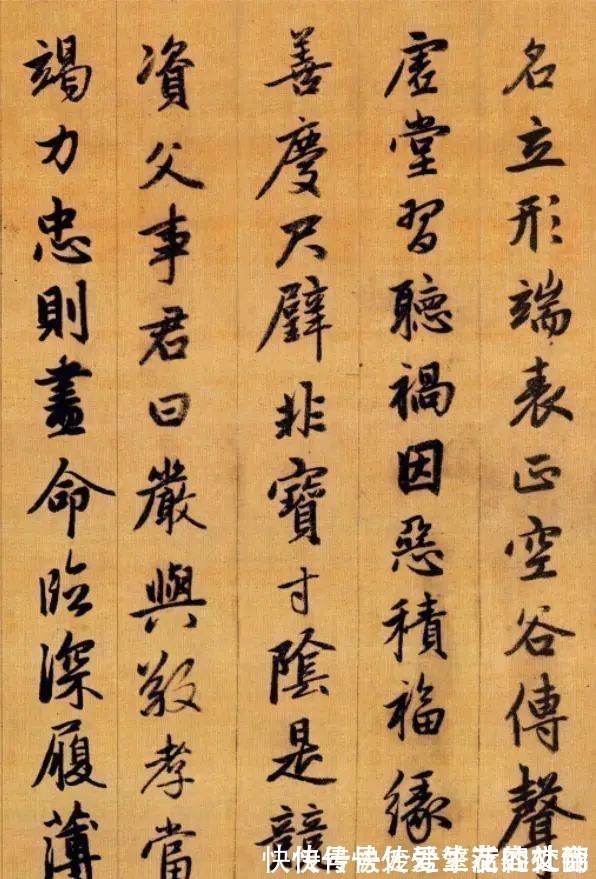 名立形端表正空谷傳聲
虛堂習聽禍因惡積福緣
善慶尺璧非寶寸陰是競
資父事君曰嚴與敬孝當
竭力忠則盡命臨深履薄